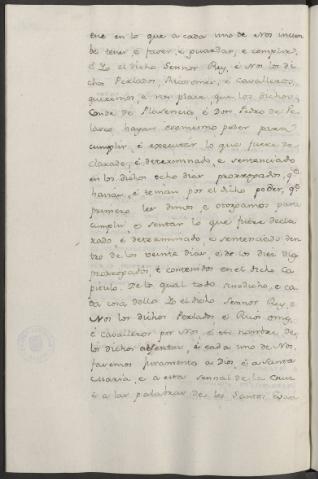 ene en lo que a cada uno de Nos incum
be tener, é facer, é guardar, e complir.
é Yo el dicho Sennor Rey, é Nos los di
chos Perlados, Ricosomes, é cavalleros,
queremos, é nos place, que los dichos
Conde de Plasencia, é Don Pedro de Ve
lasco hayan eso mismo poder para
cumplir, é executar lo que fuere de
clarado, é determinado, e sentenciado
en los dichos ocho dias prorrogados, qº
havian, é tenian por el dicho poder, qº
primero les dimos, e otorgamos para
cumplir, e sentar lo que fuere decla
rado, é determinado, e sentenciado den
tro de los veinte dias, é de los diez dias
prorrogados, é contenidos en el dicho ca
pitulo. De lo qual todo susodicho, e ca
da cosa dello Yo el dicho Sennor Rey, e
Nos los dichos Perlados, e Ricos omes,
é cavalleros por Nos, é en nombre de
los dichos absentes, é cada uno de Nos,
facemos juramento a Dios, é a Santa
Maria, e a esta sennal de la Cruz
é a las palabras de los Santos Evan